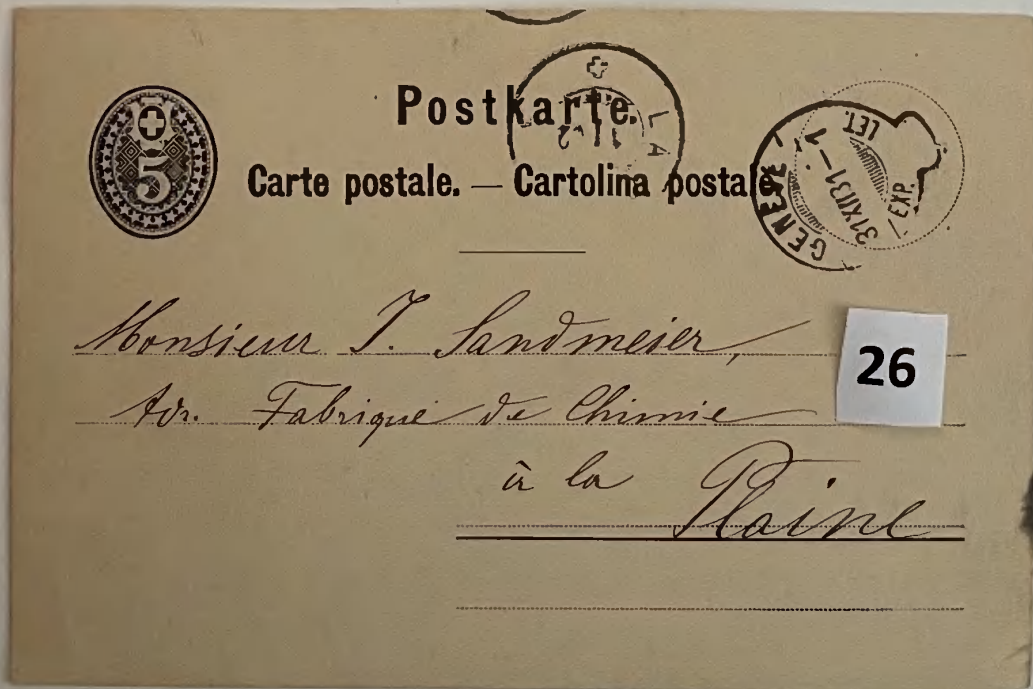 Postkarte.
5
Carte postale. — Cartolina postale.
LA
GENÈVE
31 XII 31 – 1
EXP. LET.
Monsieur J. Sandmeier,
Adr. Fabrique de Chimie
26
à la
Plaine